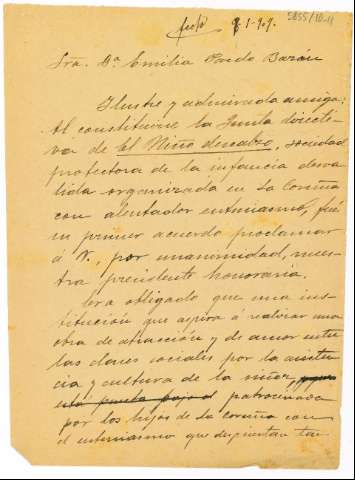 5855/10-11
8-1-909.
Sra. Dª Emilia Pardo Bazán
Ilustre y admirada amiga:
Al constituirse la Junta directi-
va de El Niño descalzo, sociedad
protectora de la infancia desva-
lida organizada en La Coruña
con alentador entusiasmo, fué
su primer acuerdo proclamar
á V., por unanimidad, nues-
tra presidente honoraria.
Era obligado que una ins-
titución que aspira á realizar una
obra de atracción y de amor entre
las clases sociales por la asisten-
cia y cultura de la niñez,
patrocinada
por los hijos de La Coruña con
el entusiasmo que despiertan tan